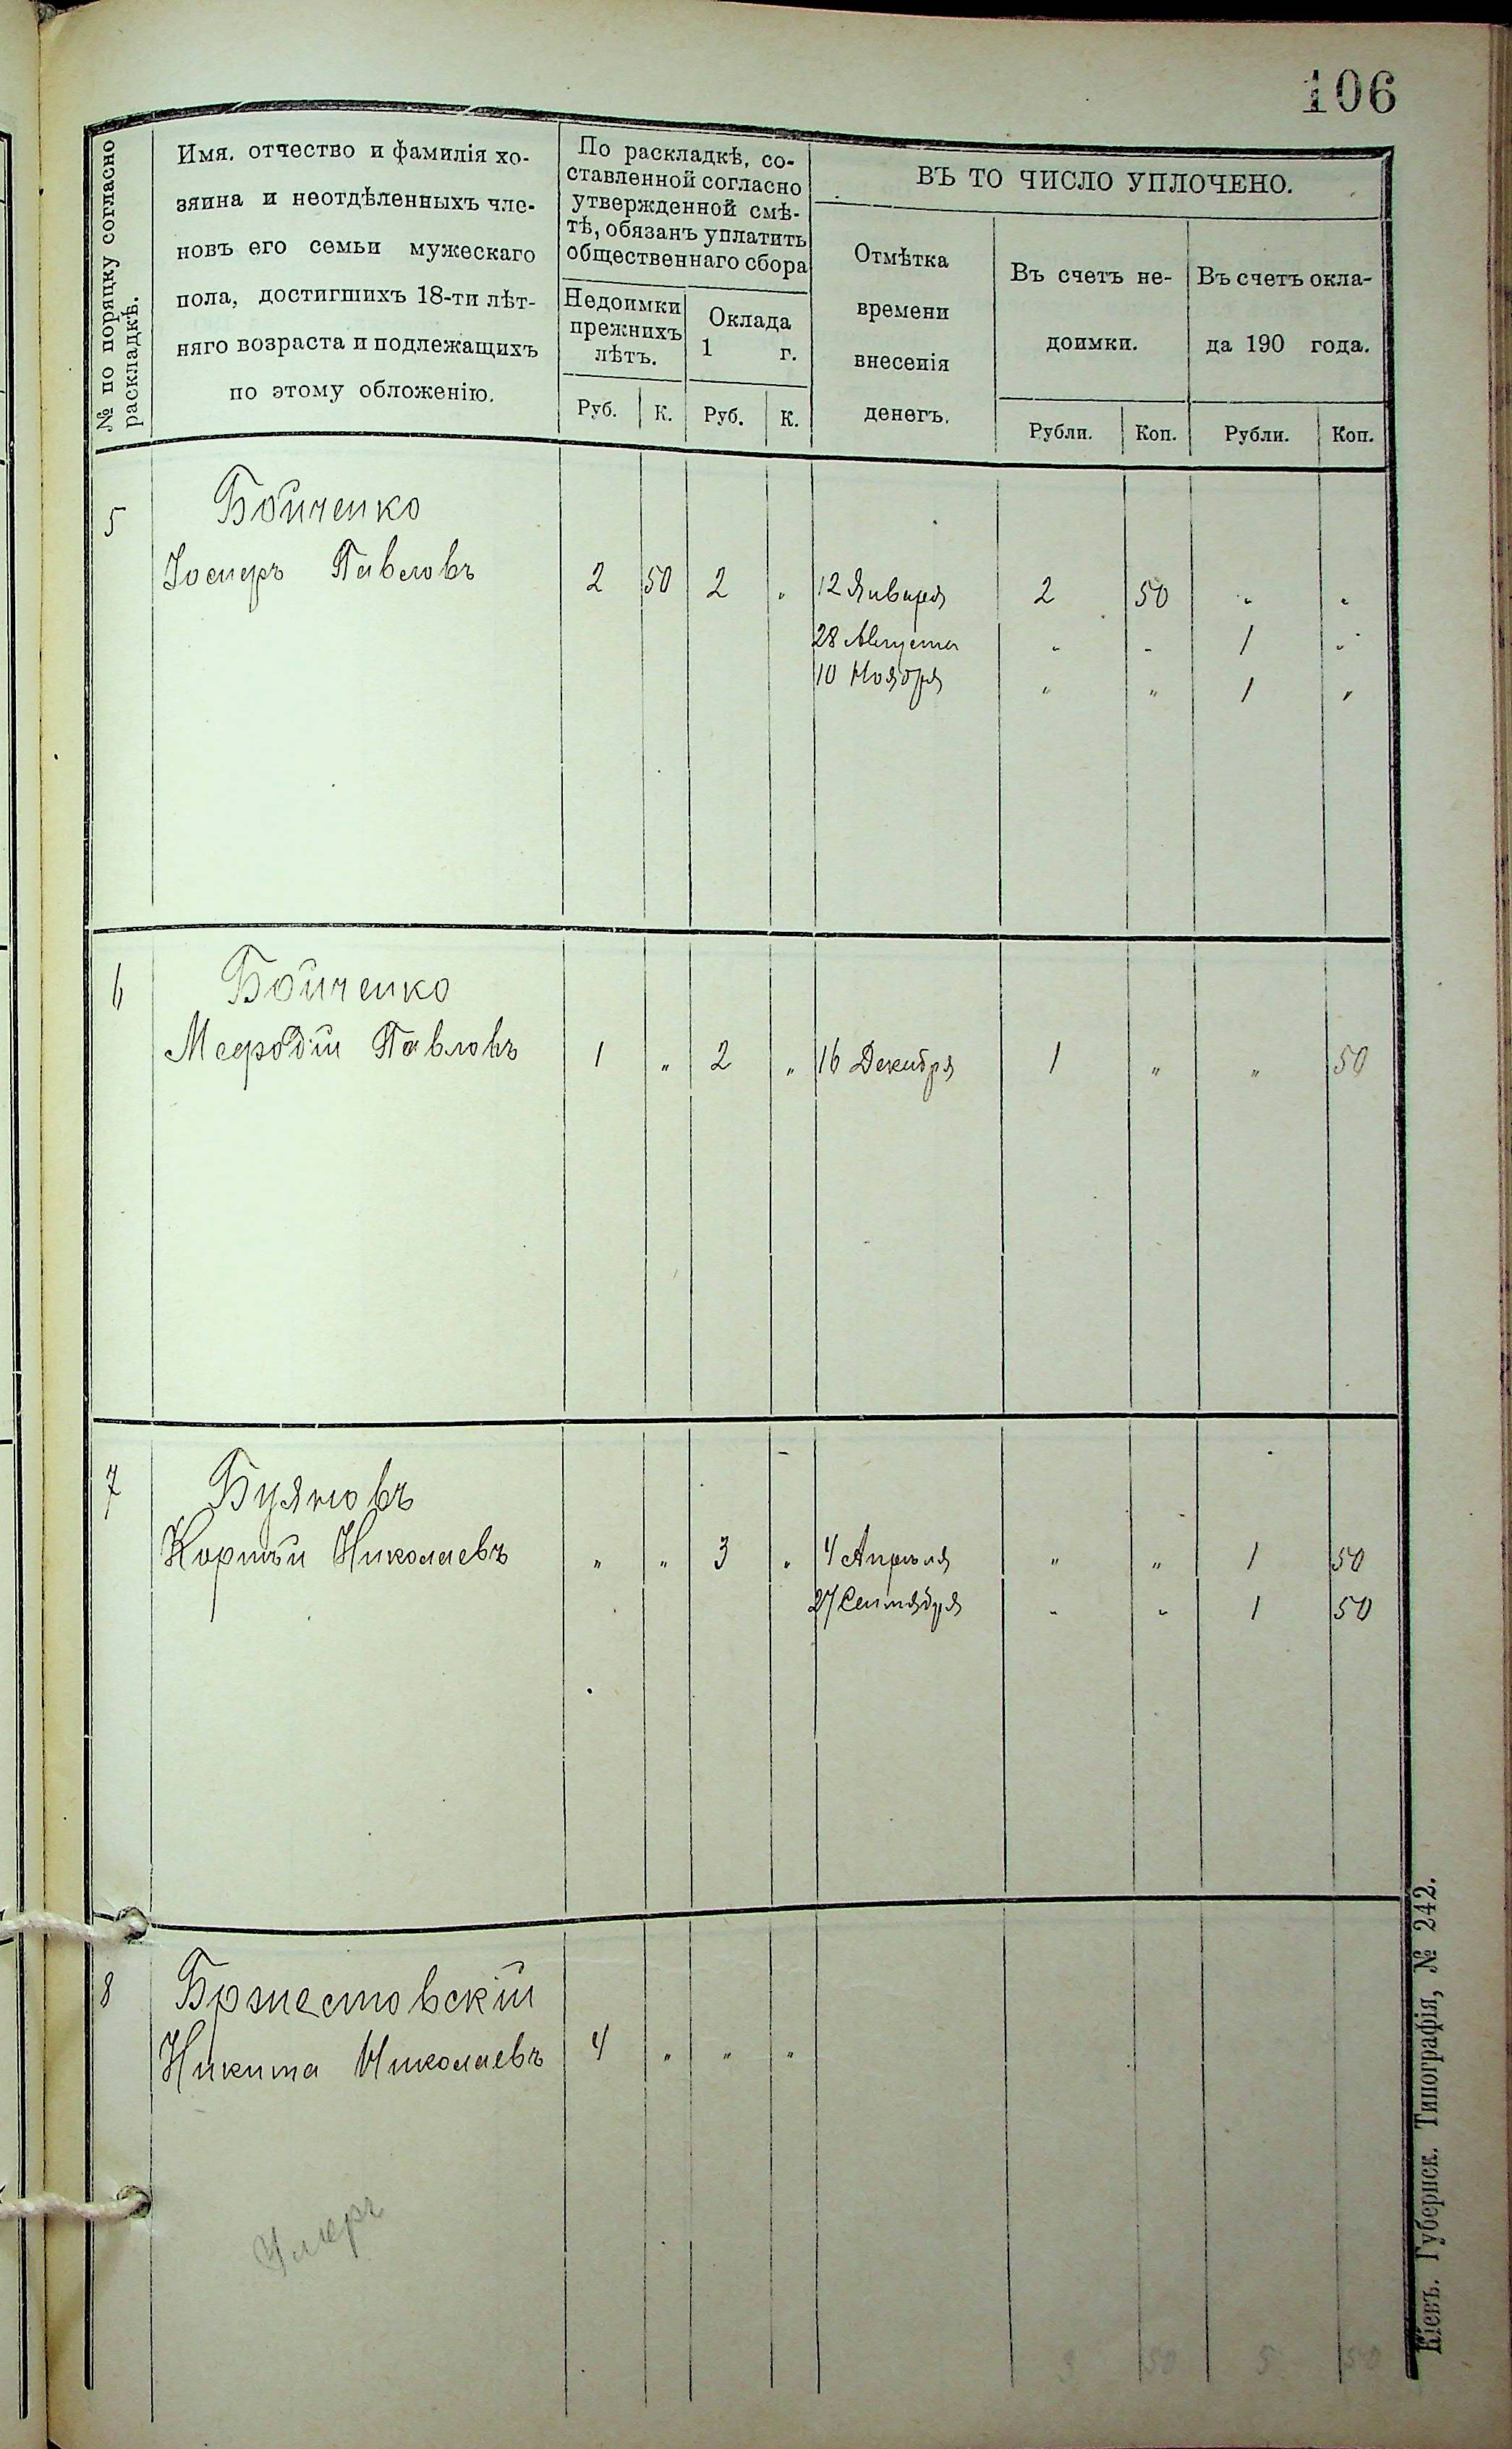 106
№ по порядку согласно
раскладкѣ.
Имя, отчество и фамилія хо-
зяина и неотдѣленныхъ чле-
новъ его семьи мужескаго
пола, достигшихъ 18-ти лѣт-
няго возраста и подлежащихъ
по этому обложенію.
По раскладкѣ, со-
ставленной согласно
утвержденной смѣ-
тѣ, обязанъ уплатить
общественнаго сбора
Недоимки
прежнихъ
лѣтъ.
Оклада
1 г.
Руб. К. Руб. К.
ВЪ ТО ЧИСЛО УПЛОЧЕНО.
Отмѣтка
времени
внесенія
денегъ.
Въ счетъ не-
доимки.
Въ счетъ окла-
да 190 года.
Рубли. Коп. Рубли. Коп.
5 Бойченко
Іосифъ Павловъ 2 50 2 „ 12 Января 2 50 „ „
28 Августа „ „ 1 „
10 Ноября „ „ 1 „
6 Бойченко
Мефодій Павловъ 1 „ 2 „ 16 Декабря 1 „ „ 50
7 Буяновъ
Корнѣй Николаевъ „ „ 3 „ 4 Апрѣля „ „ 1 50
27 Сентября „ „ 1 50
8 Бржестовскій
Никита Николаевъ 4 „ „ „
Умеръ
3 50 5 50
Кіевъ. Губернск. Типографія, № 242.